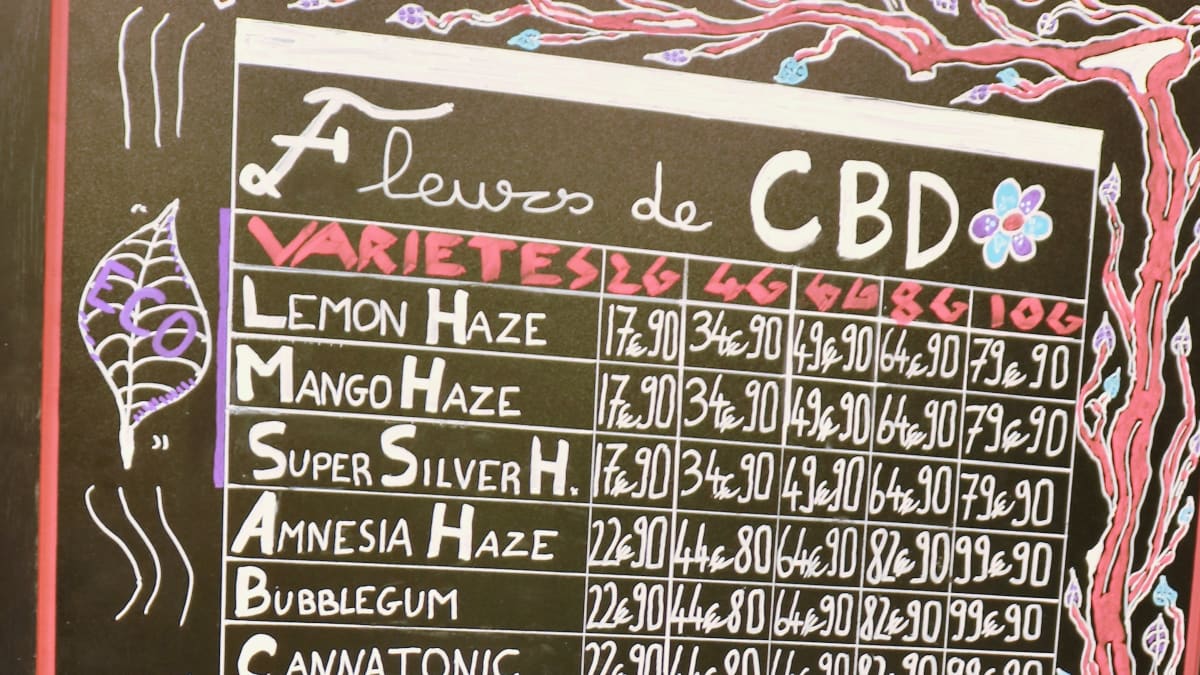 Fleurs de CBD
VARIETES 2G 4G 6G 8G 10G
ECO
LEMON HAZE 17€90 34€90 49€90 64€90 79€90
MANGO HAZE 17€90 34€90 49€90 64€90 79€90
SUPER SILVER H. 17€90 34€90 49€90 64€90 79€90
AMNESIA HAZE 22€90 44€80 64€90 82€90 99€90
BUBBLEGUM 22€90 44€80 64€90 82€90 99€90
CANNATONIC